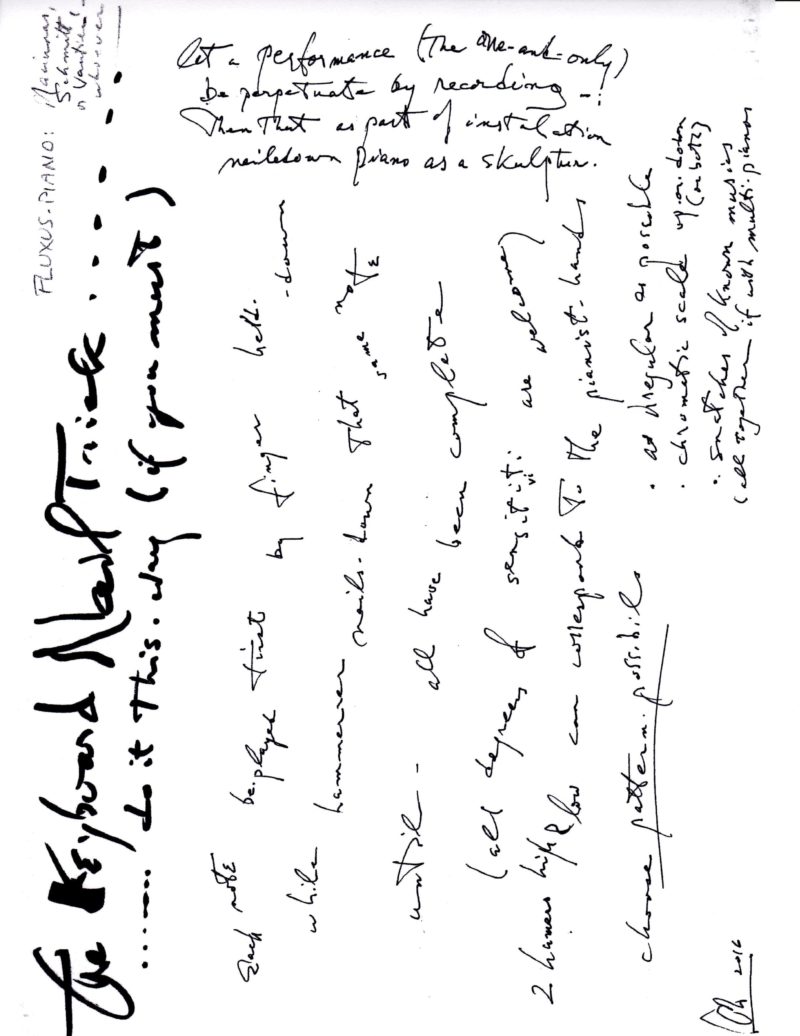 FLUXUS-PIANO: Maciunas,
Schmitt &
Vautier &
whoever
The Keyboard Nail Trick .........
...... do it this.way (if you must)
let a performance (the one-and-only)
be perpetuate by recording –!
Then that as part of instalation
naildown piano as a skulptur.
Each note be.played first by finger held-down
while hammerer nails-down that same note
until – all have been complete
(all degrees of sensitivi are welcome)
2 hamers high & low can correspont to the pianist-hands
choose pattern.possibils
· as irregular as possible
· chromatic scale up.or.down
(or both)
· snatches of known musics
(all together if with multi.pianos
2016